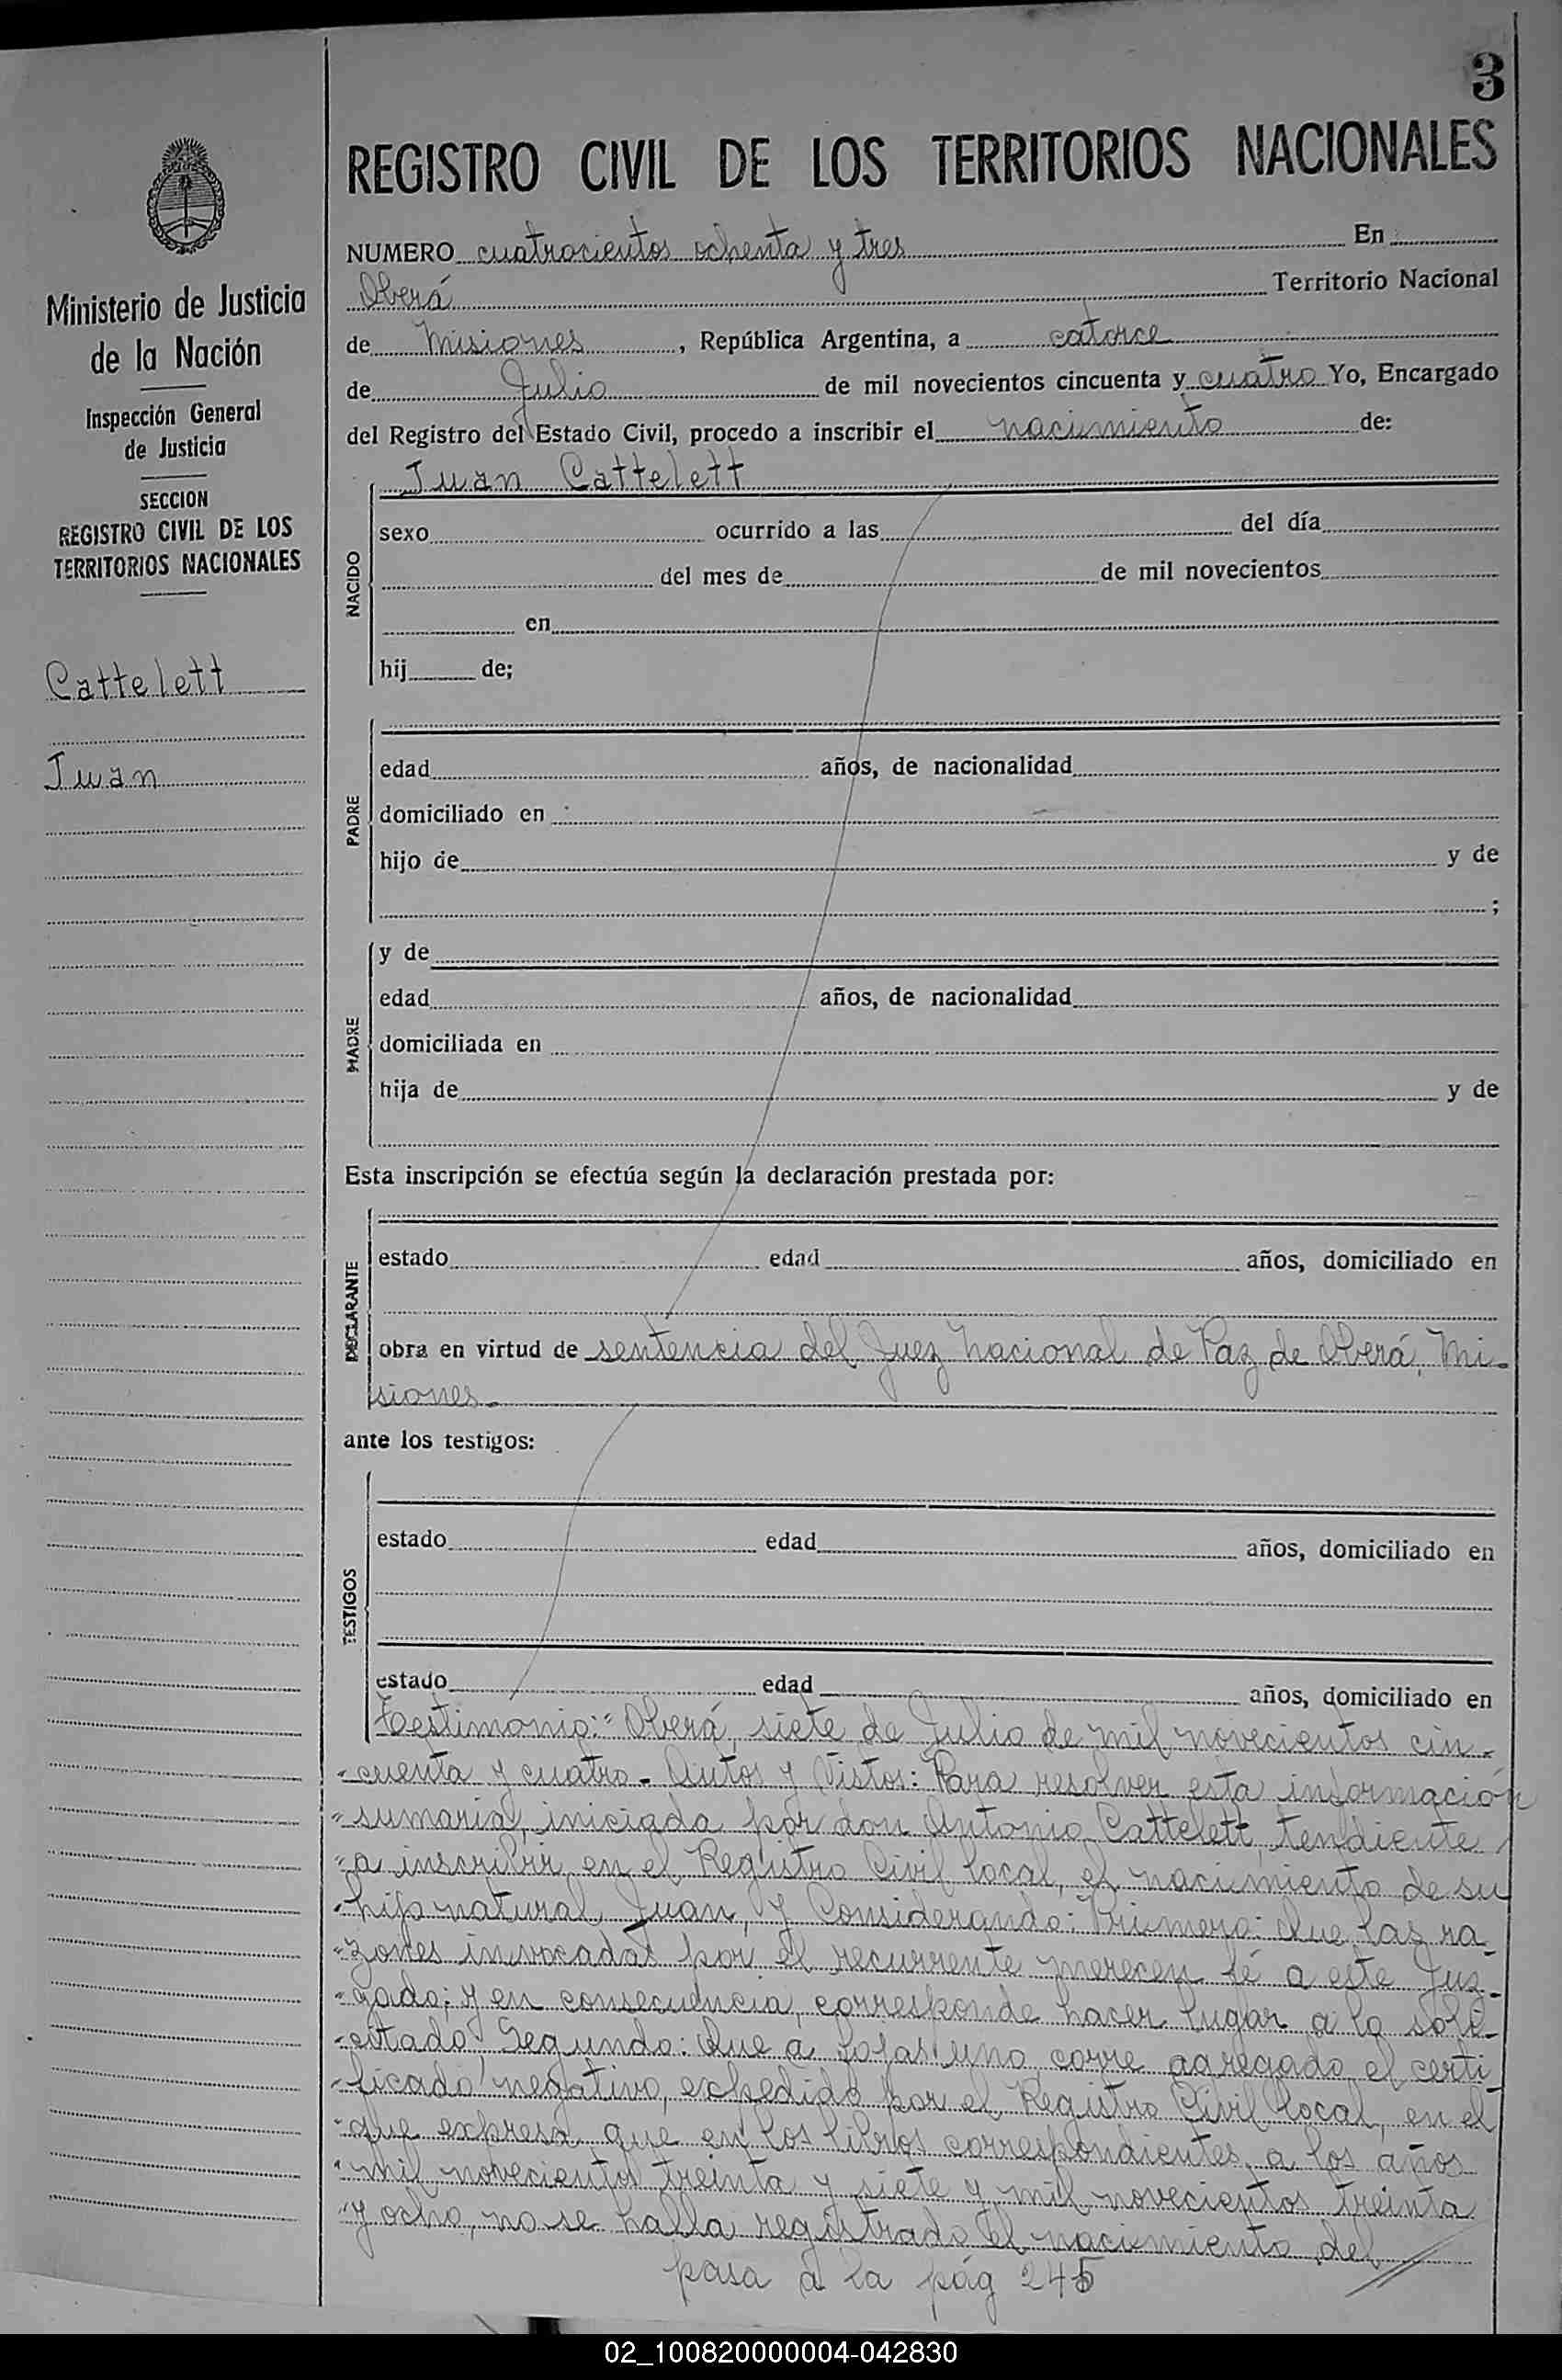 3
REGISTRO CIVIL DE LOS TERRITORIOS NACIONALES
Ministerio de Justicia
de la Nación
Inspección General
de Justicia
SECCION
REGISTRO CIVIL DE LOS
TERRITORIOS NACIONALES
Cattelett
Juan
NUMERO cuatrocientos ochenta y tres En
Oberá Territorio Nacional
de Misiones, República Argentina, a catorce
de Julio de mil novecientos cincuenta y cuatro Yo, Encargado
del Registro del Estado Civil, procedo a inscribir el nacimiento de:
Juan Cattelett
NACIDO
sexo ocurrido a las del día
del mes de de mil novecientos
en
hij de;
PADRE
edad años, de nacionalidad
domiciliado en
hijo de y de
;
MADRE
y de
edad años, de nacionalidad
domiciliada en
hija de y de
Esta inscripción se efectúa según la declaración prestada por:
DECLARANTE
estado edad años, domiciliado en
obra en virtud de sentencia del Juez Nacional de Paz de Oberá, Mi-
siones.-
ante los testigos:
TESTIGOS
estado edad años, domiciliado en
estado edad años, domiciliado en
Testimonio:" Oberá, siete de Julio de mil novecientos cin-
"cuenta y cuatro.- Autos y Vistos: Para resolver esta información
"sumaria, iniciada por don Antonio Cattelett, tendiente
"a inscribir en el Registro Civil local, el nacimiento de su
"hijo natural Juan, y Considerando: Primero: Que las ra-
"zones invocadas por el recurrente merecen fé a este Juz-
"gado; y en consecuencia, corresponde hacer lugar a lo soli-
"citado, Segundo: Que a fojas uno, corre agregado el certi-
"ficado negativo, expedido por el Registro Civil local, en el
"que expresa que en los libros correspondientes a los años
"mil novecientos treinta y siete y mil novecientos treinta
"y ocho, no se halla registrado el nacimiento del
pasa a la pág 245
02_100820000004-042830